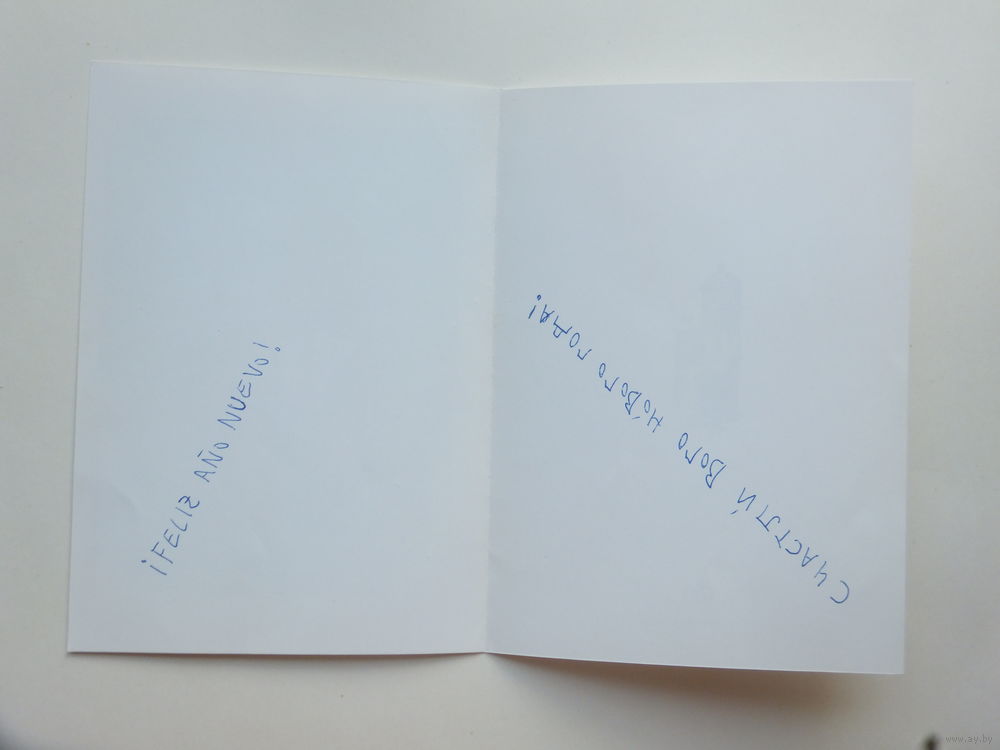 ¡FELIZ AÑO NUEVO!
СЧАСТЛИ́ ВОГО НО́ВОГО ГОДА!
www.ay.by